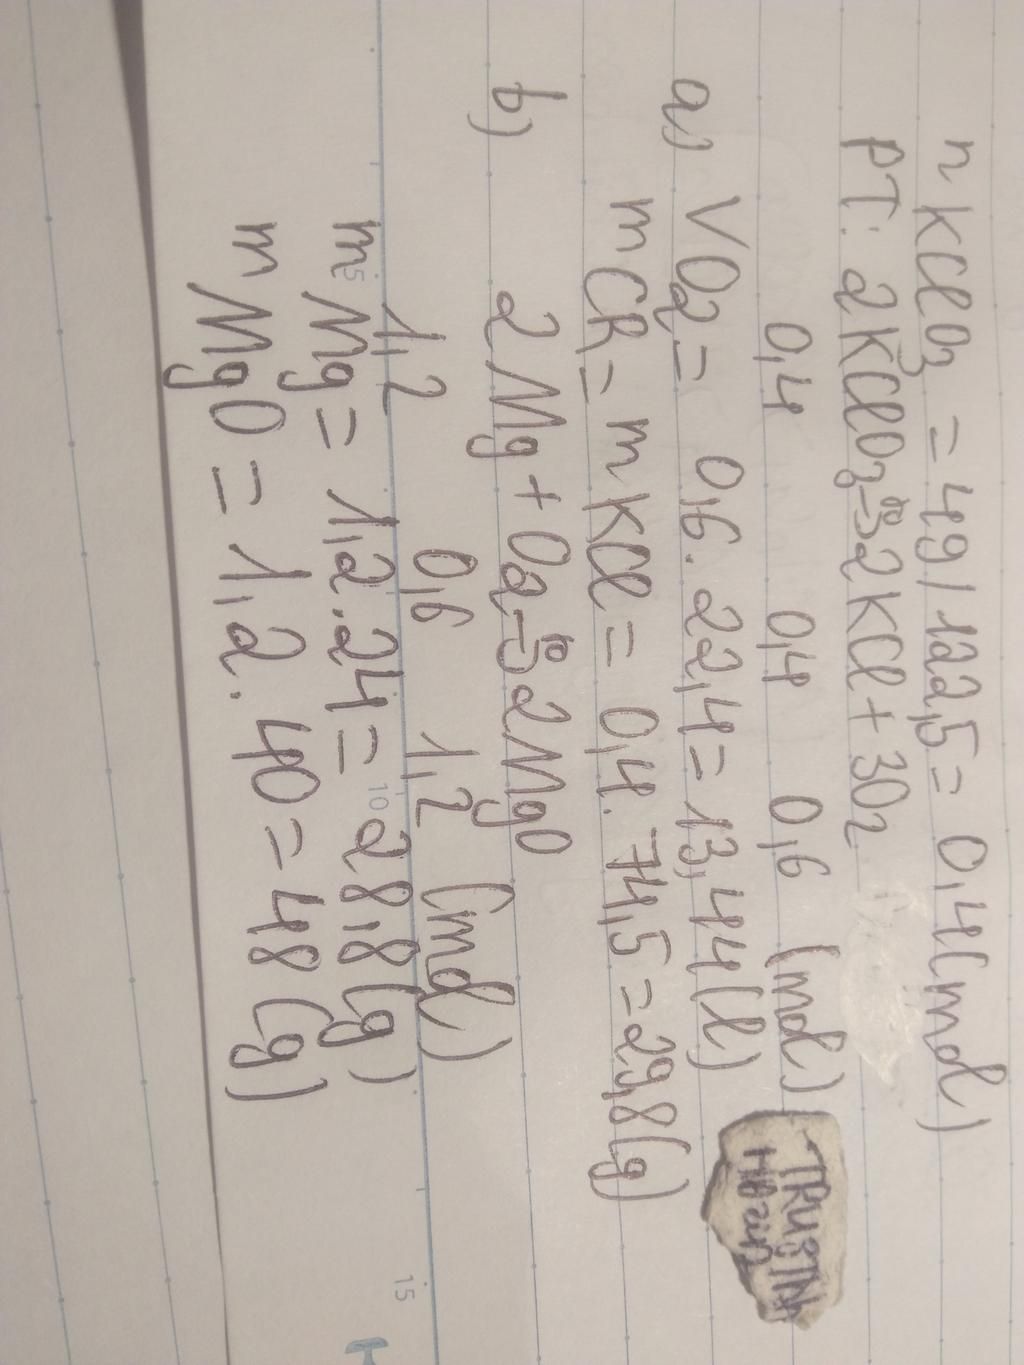 n KClO3 = 49/122,5 = 0,4(mol)
PT: 2KClO3 -t°> 2KCl + 3O2
0,4 0,4 0,6 (mol)
a) VO2 = 0,6.22,4 = 13,44(l)
m CR = m KCl = 0,4.74,5 = 29,8(g)
b) 2Mg + O2 -t°> 2MgO
1,2 0,6 1,2 (mol)
m Mg = 1,2.24 = 28,8(g)
m MgO = 1,2.40 = 48(g)
5
10
15